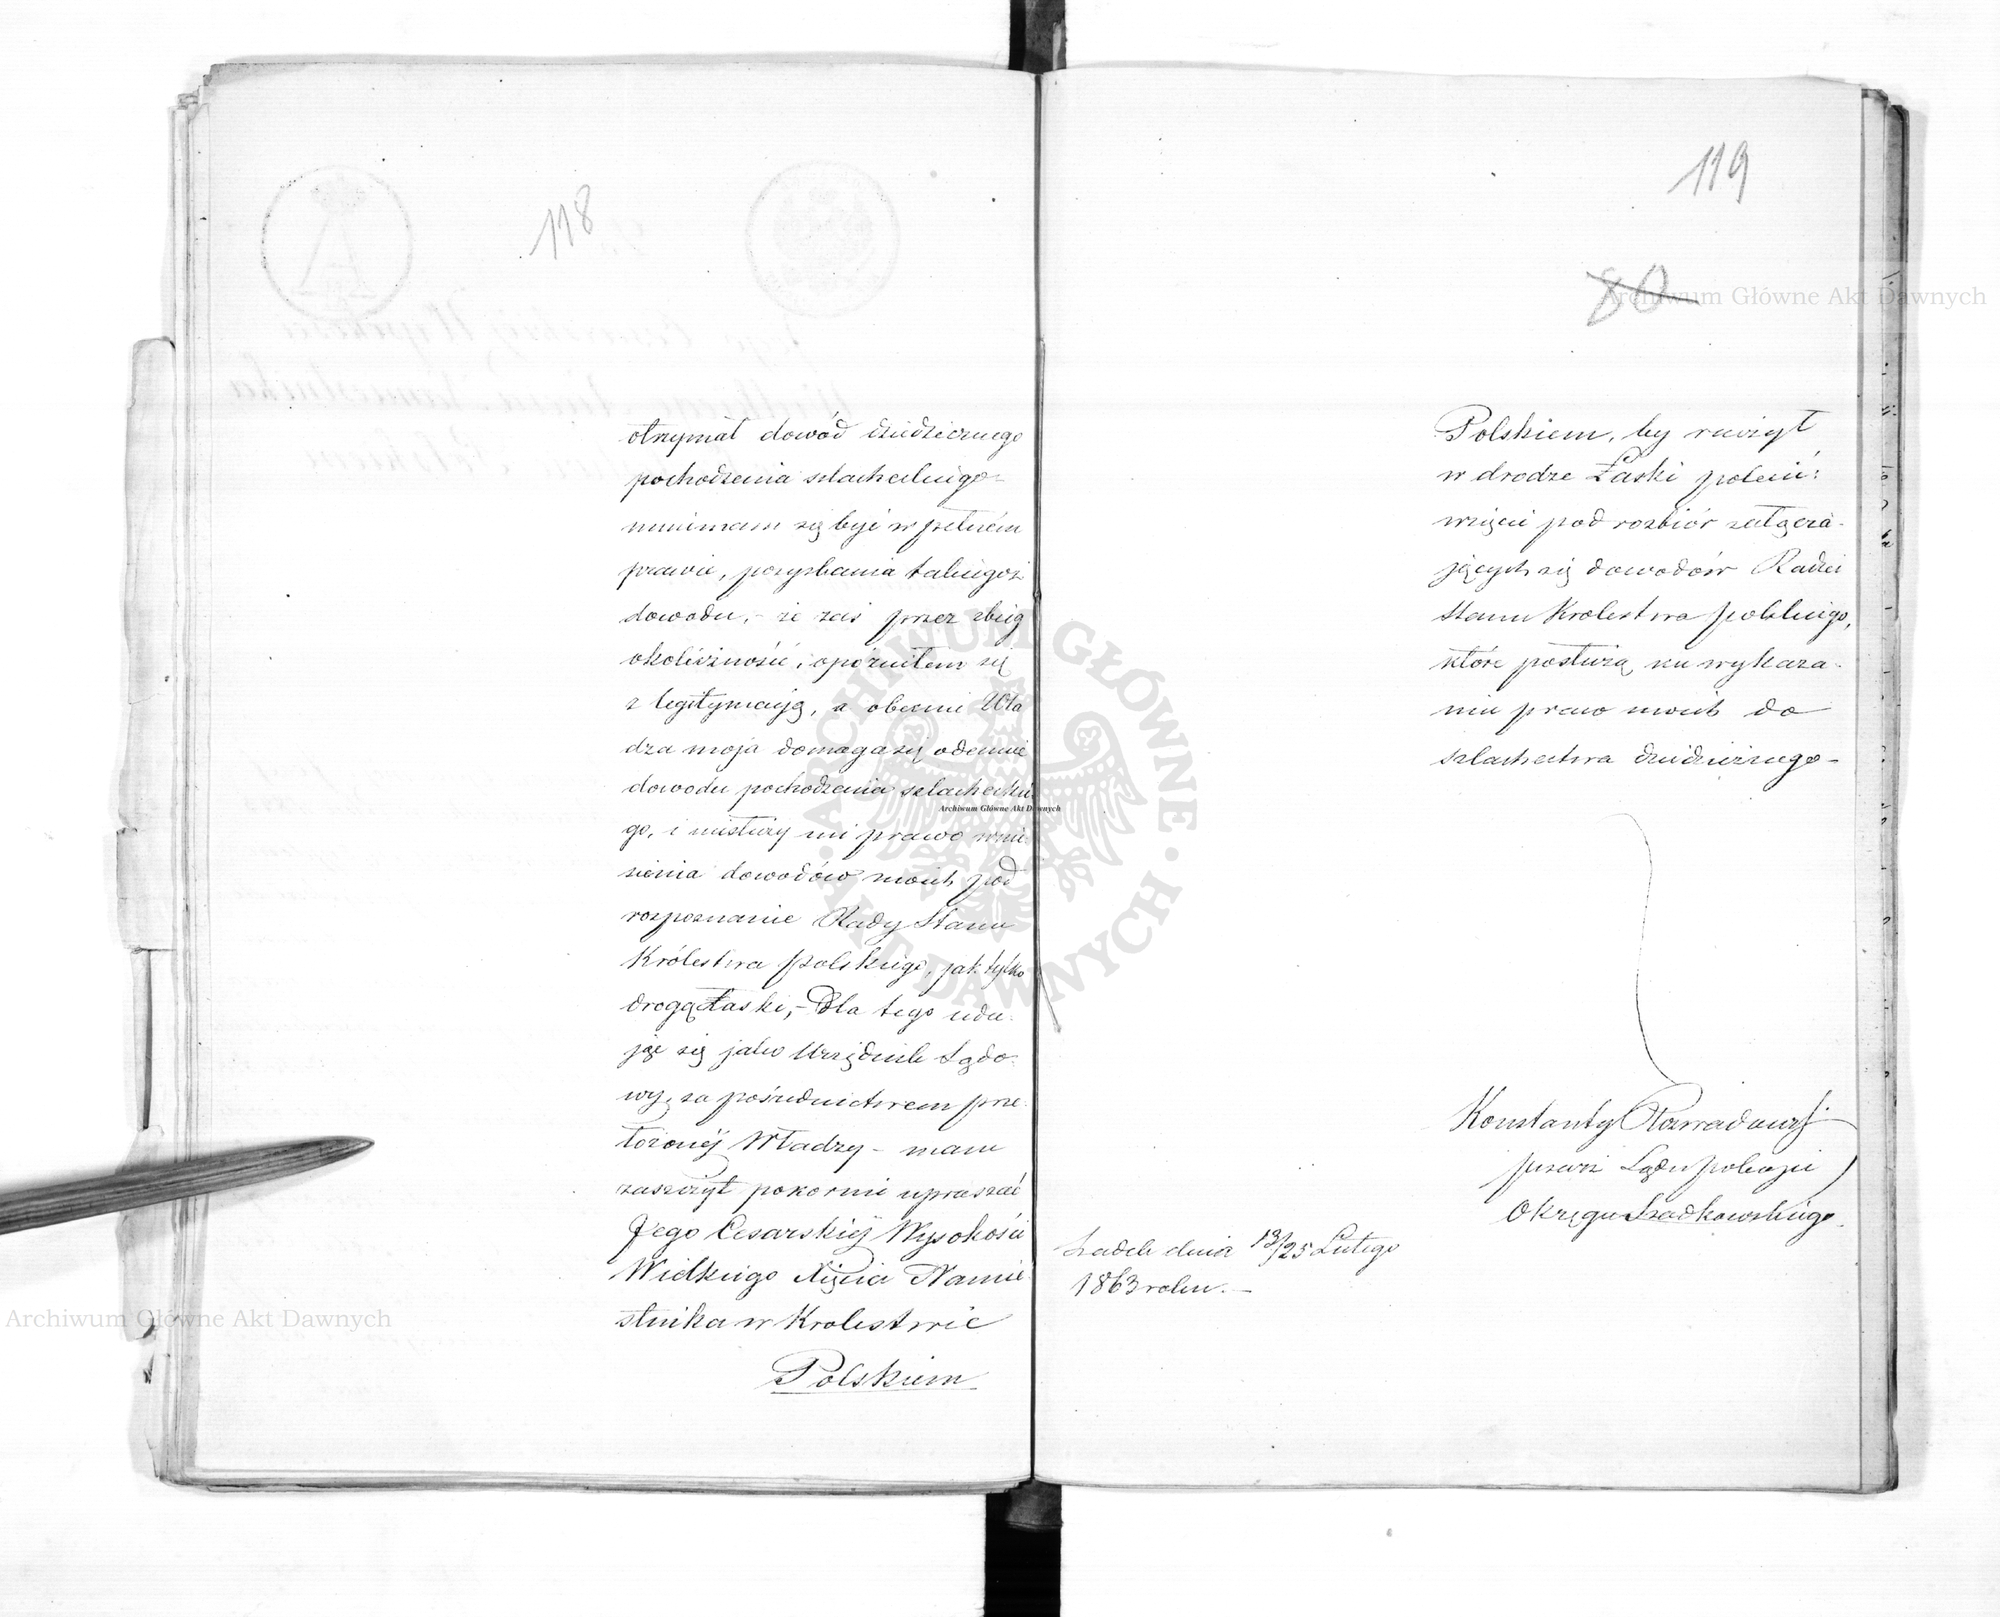 118
otrzymał dowód dziedzicznego
pochodzenia szlacheckiego
mniemam się być w pełném
prawie, pozyskania takiegoż
dowodu, – że zaś przez zbieg
okoliczność, opóźniłem się
z legitymacyą, a obecnie Wła
dza moja domaga się odemnie
dowodu pochodzenia szlachecki
go, i niesłuży mi prawo wnie
sienia dowodów moich pod
rozpoznanie Rady Stanu
Królestwa polskiego, jak tylko
drogą Łaski, – Dla tego uda-
ję się jako Urzędnik Sądo-
wy, za pośrednictwem prze-
łożonéj Władzy – mam
zaszczyt pokornie upraszać
Jego Cesarskiéj Wysokości
Wielkiego Xięcia Namie
stnika w Krolestwie
Polskiem
119
80
Polskiem, by raczył
w drodze Łaski polecić:
wzięcie pod rozbiór załącza-
jących się dowodów Radzie
Stanu Krolestwa polskiego,
które posłużą ku wykaza-
niu praw moich do
szlachectwa dziedzicznego –
Konstanty
pisarz Sądu policyi
Okręgu Szadkowskiego.
Szadek dnia 13/25 Lutego
1863 roku. –
Archiwum Główne Akt Dawnych
Archiwum Główne Akt Dawnych
Archiwum Główne Akt Dawnych
ARCHIWUM GŁÓWNE AKT DAWNYCH